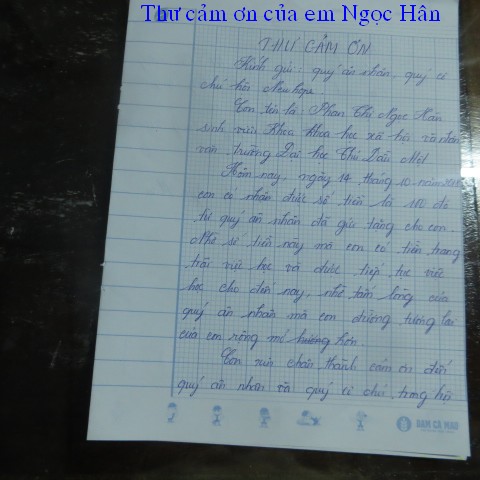 Thư cảm ơn của em Ngọc Hân
THƯ CẢM ƠN
Kính gửi: quý ân nhân, quý cô
chú hội Newhope.
Con tên là Phan Thị Ngọc Hân
sinh viên Khoa Khoa học xã hội và nhân
văn, trường Đại học Thủ Dầu Một.
Hôm nay, ngày 14 tháng 10 năm
con có nhận được số tiền là đô
từ quý ân nhân đã gửi tặng cho con.
Nhờ số tiền này mà con có tiền trang
trải việc học và được tiếp tục việc
học cho đến nay, nhờ tấm lòng của
quý ân nhân mà con đường tương lai
của em rộng mở hơn.
Con xin chân thành cảm ơn đến
quý ân nhân và quý cô chú trong hội
DAM CA MAU